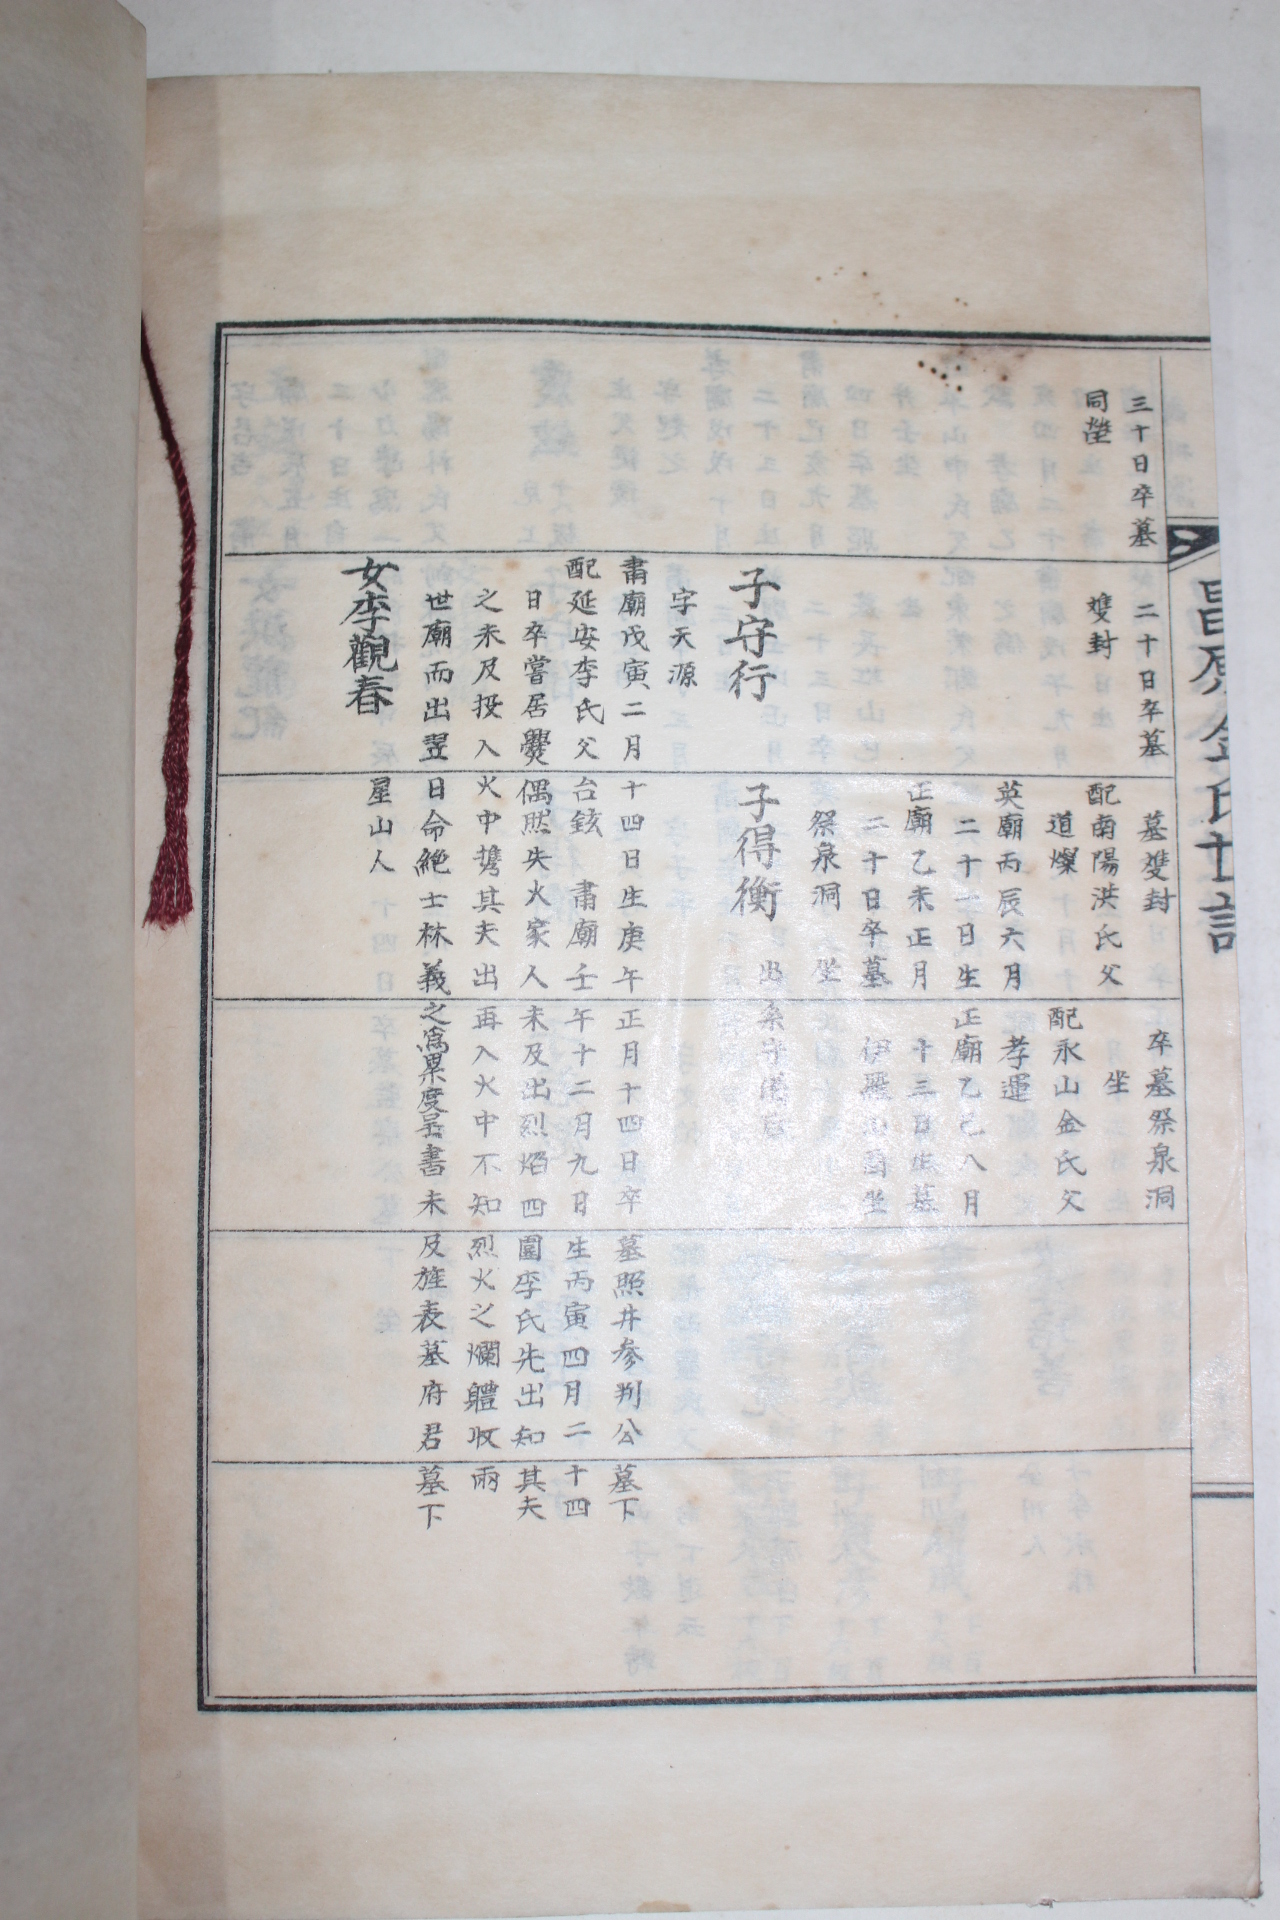 昌原金氏世譜
三十日卒墓
同塋
二十日卒墓
雙封
墓雙封
配南陽洪氏父
道燦
英廟丙辰六月
二十一日生
正廟乙未正月
二十日卒墓
祭泉洞 坐
卒墓祭泉洞
坐
配永山金氏父
孝運
正廟乙巳八月
十三日生墓
伊雁山酉坐
子守行
子得衡 出系守
字天源
肅廟戊寅二月十四日生庚午正月十四日卒墓照井參判公墓下
配延安李氏父台鉉 肅廟壬午十二月九日生丙寅四月二十四
日卒嘗居爨偶然失火家人未及出烈焰四圍李氏先出知其夫
之未及投入火中携其夫出再入火中不知烈火之爛軆收兩
世廟而出翌日命絶士林義之爲累度呈書未及旌表墓府君墓下
女李觀春 星山人